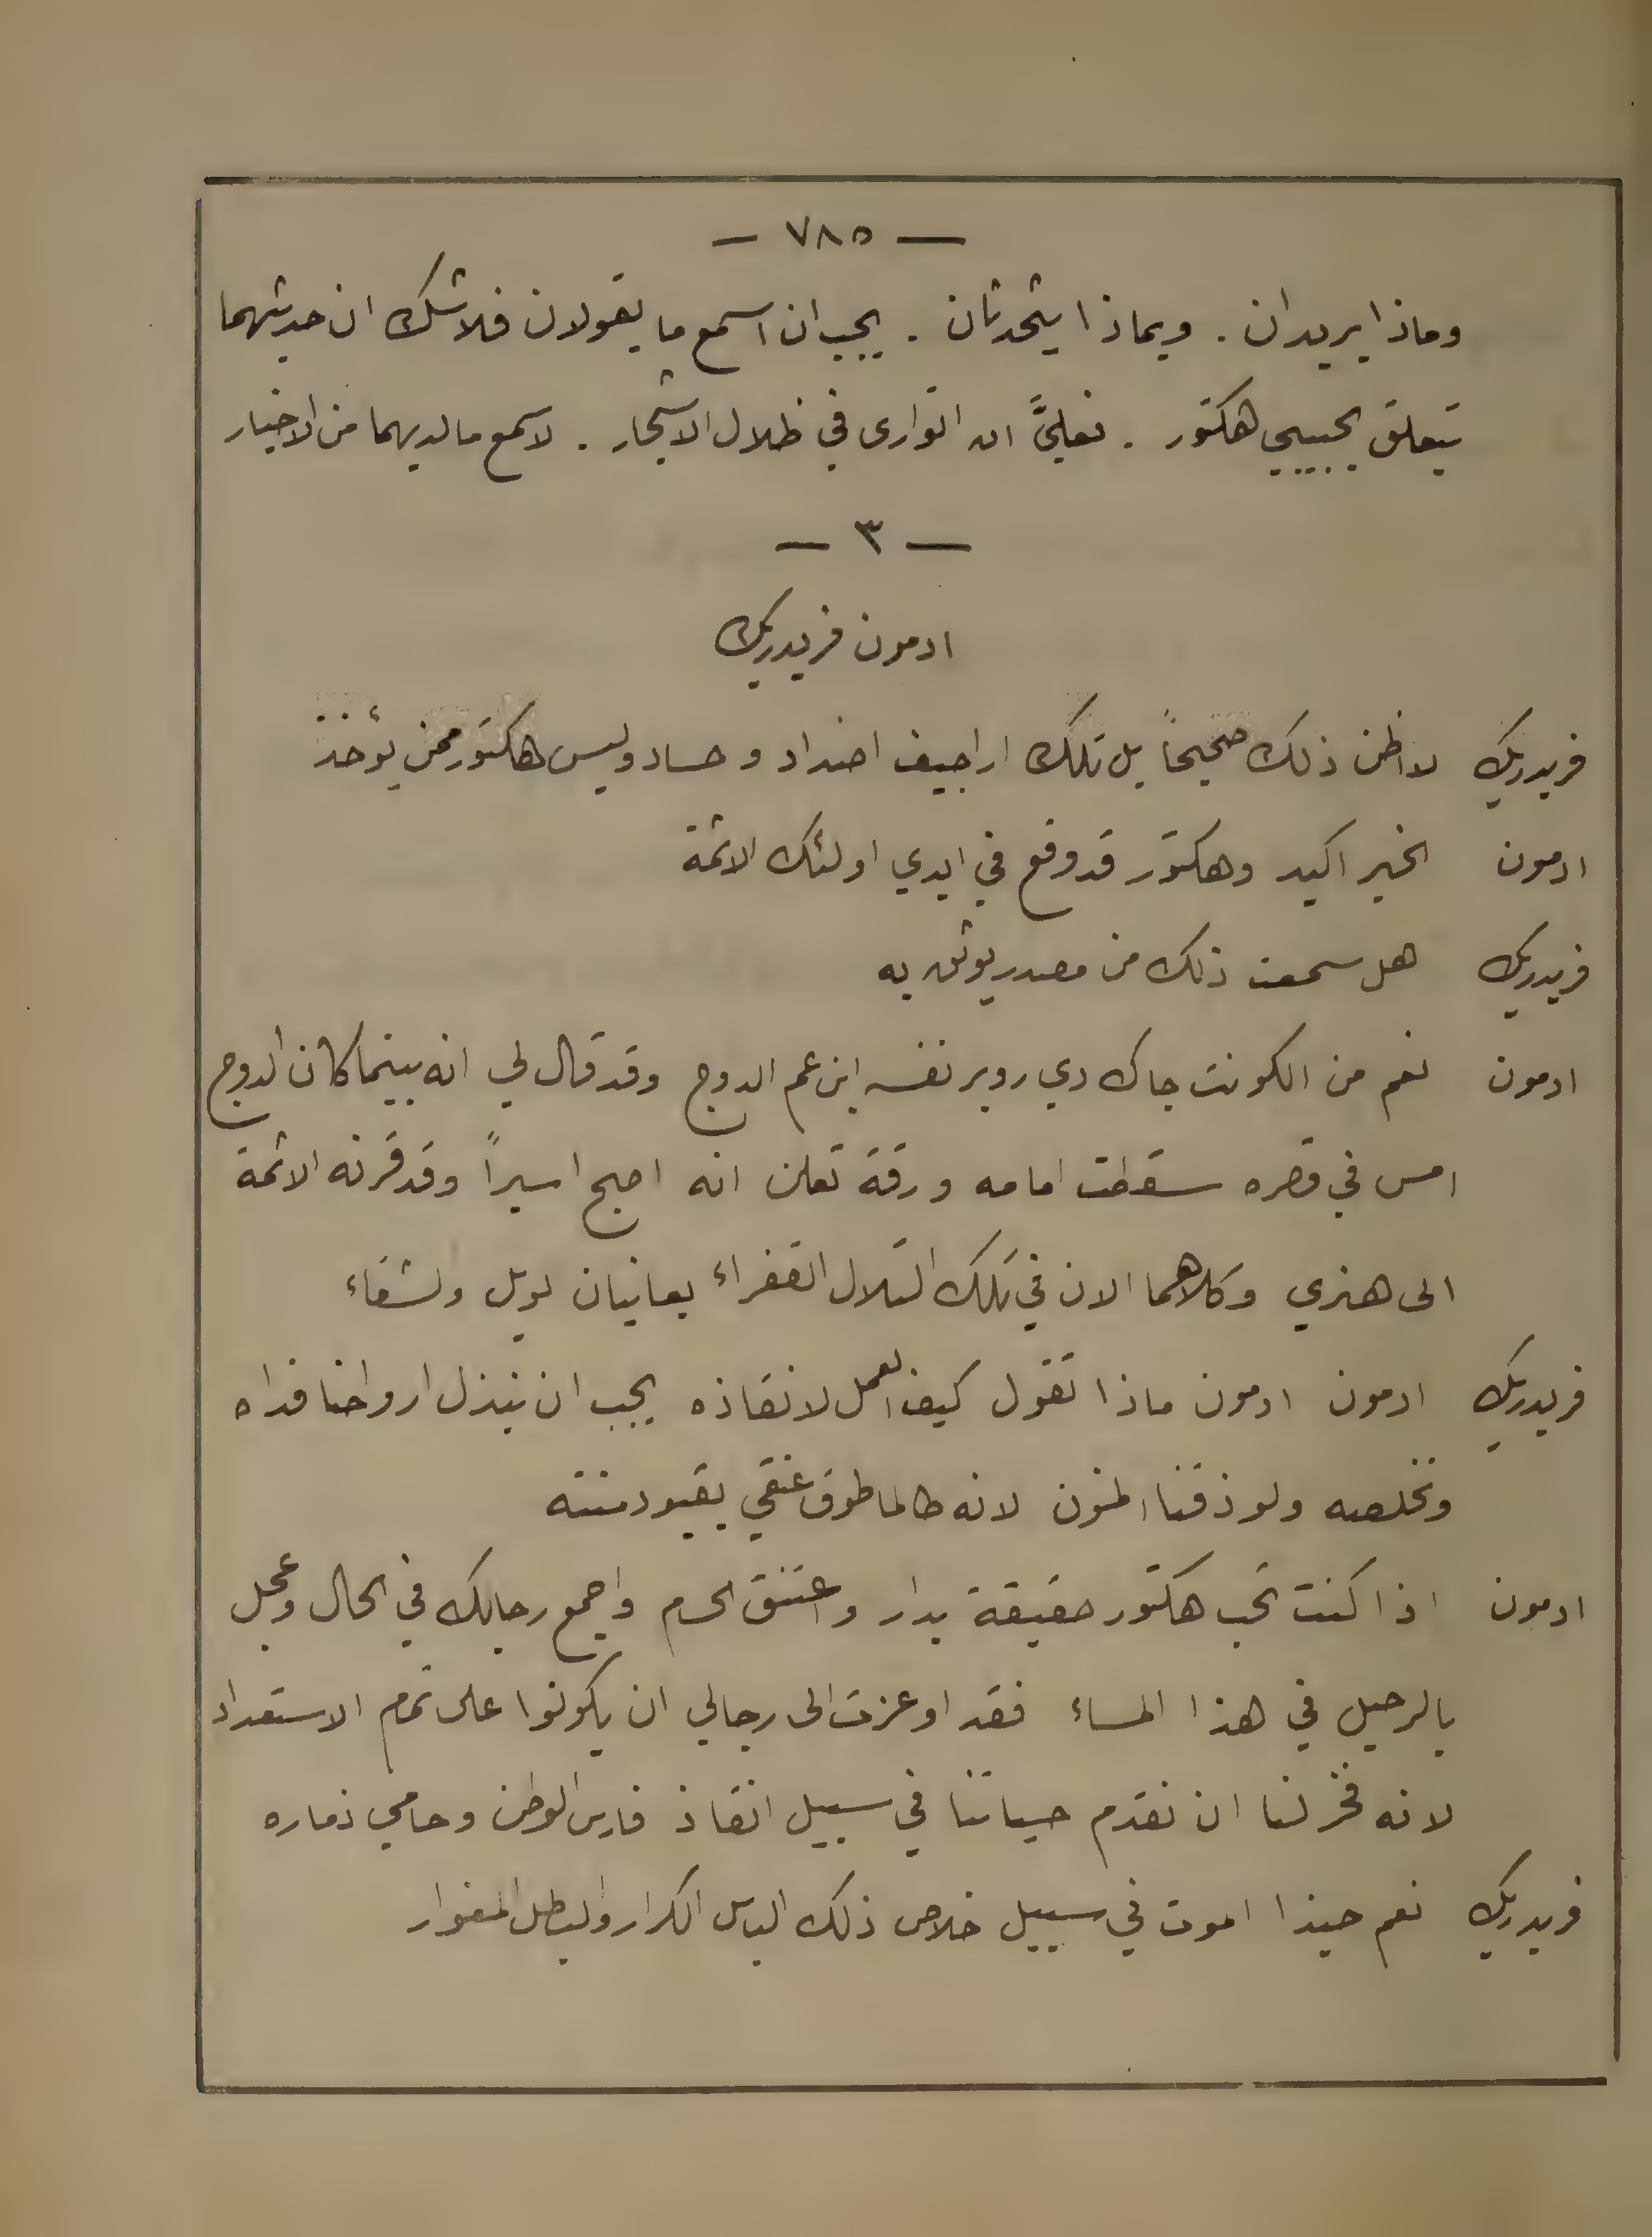 — ٧٨٥ —
وماذا يريدان . وبماذا يتحدثان . يجب ان اسمع ما يقولان فلا شك ان حديثهما
يتعلق بحبيبي هكتور . فعليَّ ان اتوارى في ظلال الاشجار . لاسمع ما لديهما من الاخبار
— ٣ —
ادمون فريدريك
فريدريك لا اظن ذلك صحيحاً بل تلك اراجيف اضداد وحساد وليس هكتور ممن يؤخذ
ادمون الخبر اكيد وهكتور قد وقع في ايدي اولئك الائمة
فريدريك هل سمعت ذلك من مصدر يوثق به
ادمون نعم من الكونت جاك دي روبر نفسه ابن عم الدوج وقد قال لي انه بينما كان الدوج
امس في قصره سقطت امامه ورقة تعلن انه اصبح اسيراً وقد قرنه الائمة
الى هنري وكلاهما الان في تلك التلال القفراء يعانيان لويل ولشقاء
فريدريك ادمون ادمون ماذا تقول كيف العمل لانقاذه يجب ان نبذل ارواحنا فداه
ونخلصه ولو ذقنا المنون لانه طالما طوق عنقي بقيود منته
ادمون اذا كنت تحب هكتور حقيقة بدار واعتنق الحسام واجمع رجالك في الحال وعجل
بالرحيل في هذا المساء فقد اوعزت الى رجالي ان يكونوا على تمام الاستعداد
لانه فخر لنا ان نقدم حياتنا في سبيل انقاذ فارس الوطن وحامي ذماره
فريدريك نعم حبذا اموت في سبيل خلاص ذلك الباسل الكرار والبطل المغوار